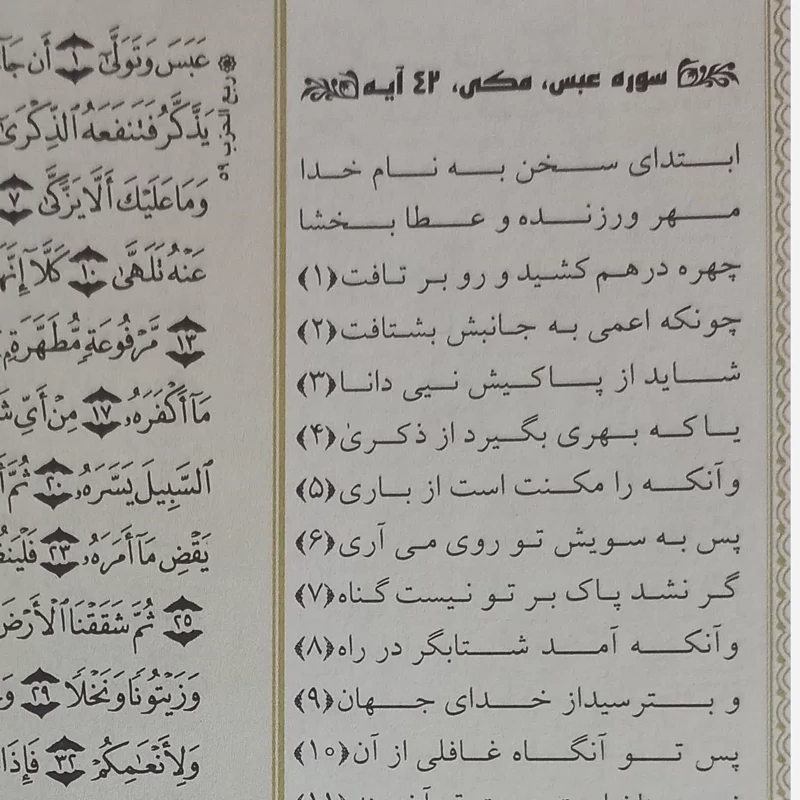 سوره عبس، مکی، ۴۲ آیه
ابتدای سخن به نام خدا
مهر ورزنده و عطا بخشا
چهره درهم کشید و رو بر تافت﴿۱﴾
چونکه اعمی به جانبش بشتافت﴿۲﴾
شاید از پاکیش نیی دانا﴿۳﴾
یا که بهری بگیرد از ذکری﴿۴﴾
وآنکه را مکنت است از باری﴿۵﴾
پس به سویش تو روی می آری﴿۶﴾
گر نشد پاک بر تو نیست گناه﴿۷﴾
وآنکه آمد شتابگر در راه﴿۸﴾
و بترسید از خدای جهان﴿۹﴾
پس تو آنگاه غافلی از آن﴿۱۰﴾
ربع الحزب ۵۹
عَبَسَ وَتَوَلَّىٰٓ ﴿۱﴾ أَن
يَذَّكَّرُ فَتَنفَعَهُ ٱلذِّكْرَىٰٓ
وَمَا عَلَيْكَ أَلَّا يَزَّكَّىٰ ﴿۷﴾
عَنْهُ تَلَهَّىٰ ﴿۱۰﴾ كَلَّآ
﴿۱۳﴾ مَّرْفُوعَةٍ مُّطَهَّرَةٍ
مَآ أَكْفَرَهُۥ ﴿۱۷﴾ مِنْ أَيِّ
ٱلسَّبِيلَ يَسَّرَهُۥ ﴿۲۰﴾ ثُمَّ
يَقْضِ مَآ أَمَرَهُۥ ﴿۲۳﴾
﴿۲۵﴾ ثُمَّ شَقَقْنَا ٱلْأَرْضَ
وَزَيْتُونًا وَنَخْلًا ﴿۲۹﴾
وَلِأَنْعَٰمِكُمْ ﴿۳۲﴾ فَإِذَا